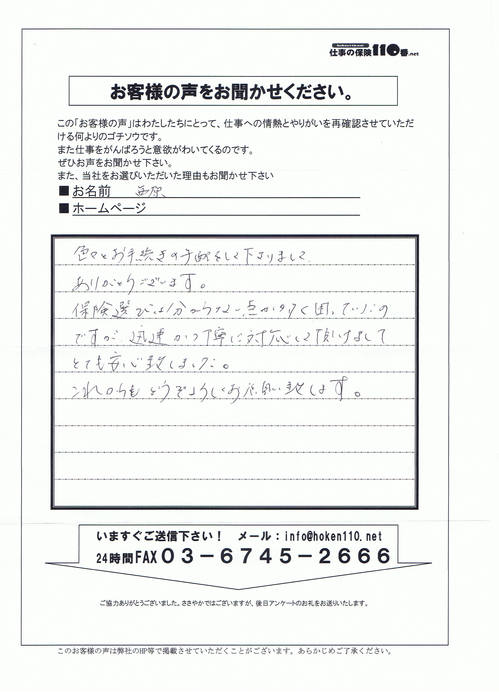 仕事の保険110番.net
お客様の声をお聞かせください。
この「お客様の声」はわたしたちにとって、仕事への情熱とやりがいを再確認させていただ
ける何よりのゴチソウです。
また仕事をがんばろうと意欲がわいてくるのです。
ぜひお声をお聞かせ下さい。
また、当社をお選びいただいた理由もお聞かせ下さい
■お名前
■ホームページ
色々とお手続きの手配をして下さりまして
ありがとうございます。
保険選びは分からない点が多く困っていたの
ですが、迅速かつ丁寧に対応して頂けまして
とても安心致しました。
これからもどうぞよろしくお願い致します。
いますぐご送信下さい! メール:info@hoken110.net
24時間FAX03-6745-2666
ご協力ありがとうございました。ささやかではございますが、後日アンケートのお礼をお送りいたします。
このお客様の声は弊社のHP等で掲載させていただくことがございます。あらかじめご了承ください。